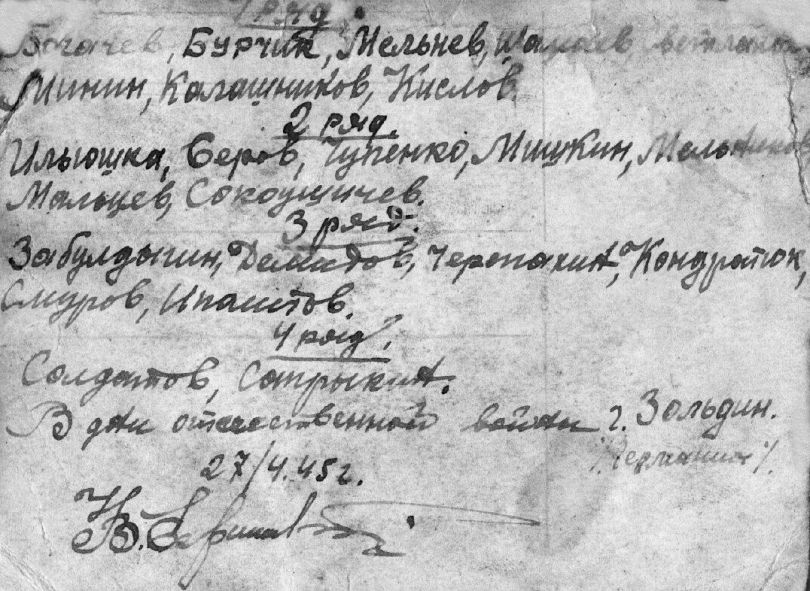 1 ряд.
Богачев, Бурчик, Мельнев,
Минин, Калашников, Кислов.
2 ряд.
Ильюшка, Серов, Тупенко, Мишкин, Мельников
Мальцев, Сокоушичев.
3 ряд.
Забулдыгин, Демидов, Черепахин, Кондратюк,
Смуров, Ипатов.
4 ряд.
Солдатов, Сапрыкин.
В дни отечественной войны г. Зольдин.
/Германия/.
27/4.45 г.